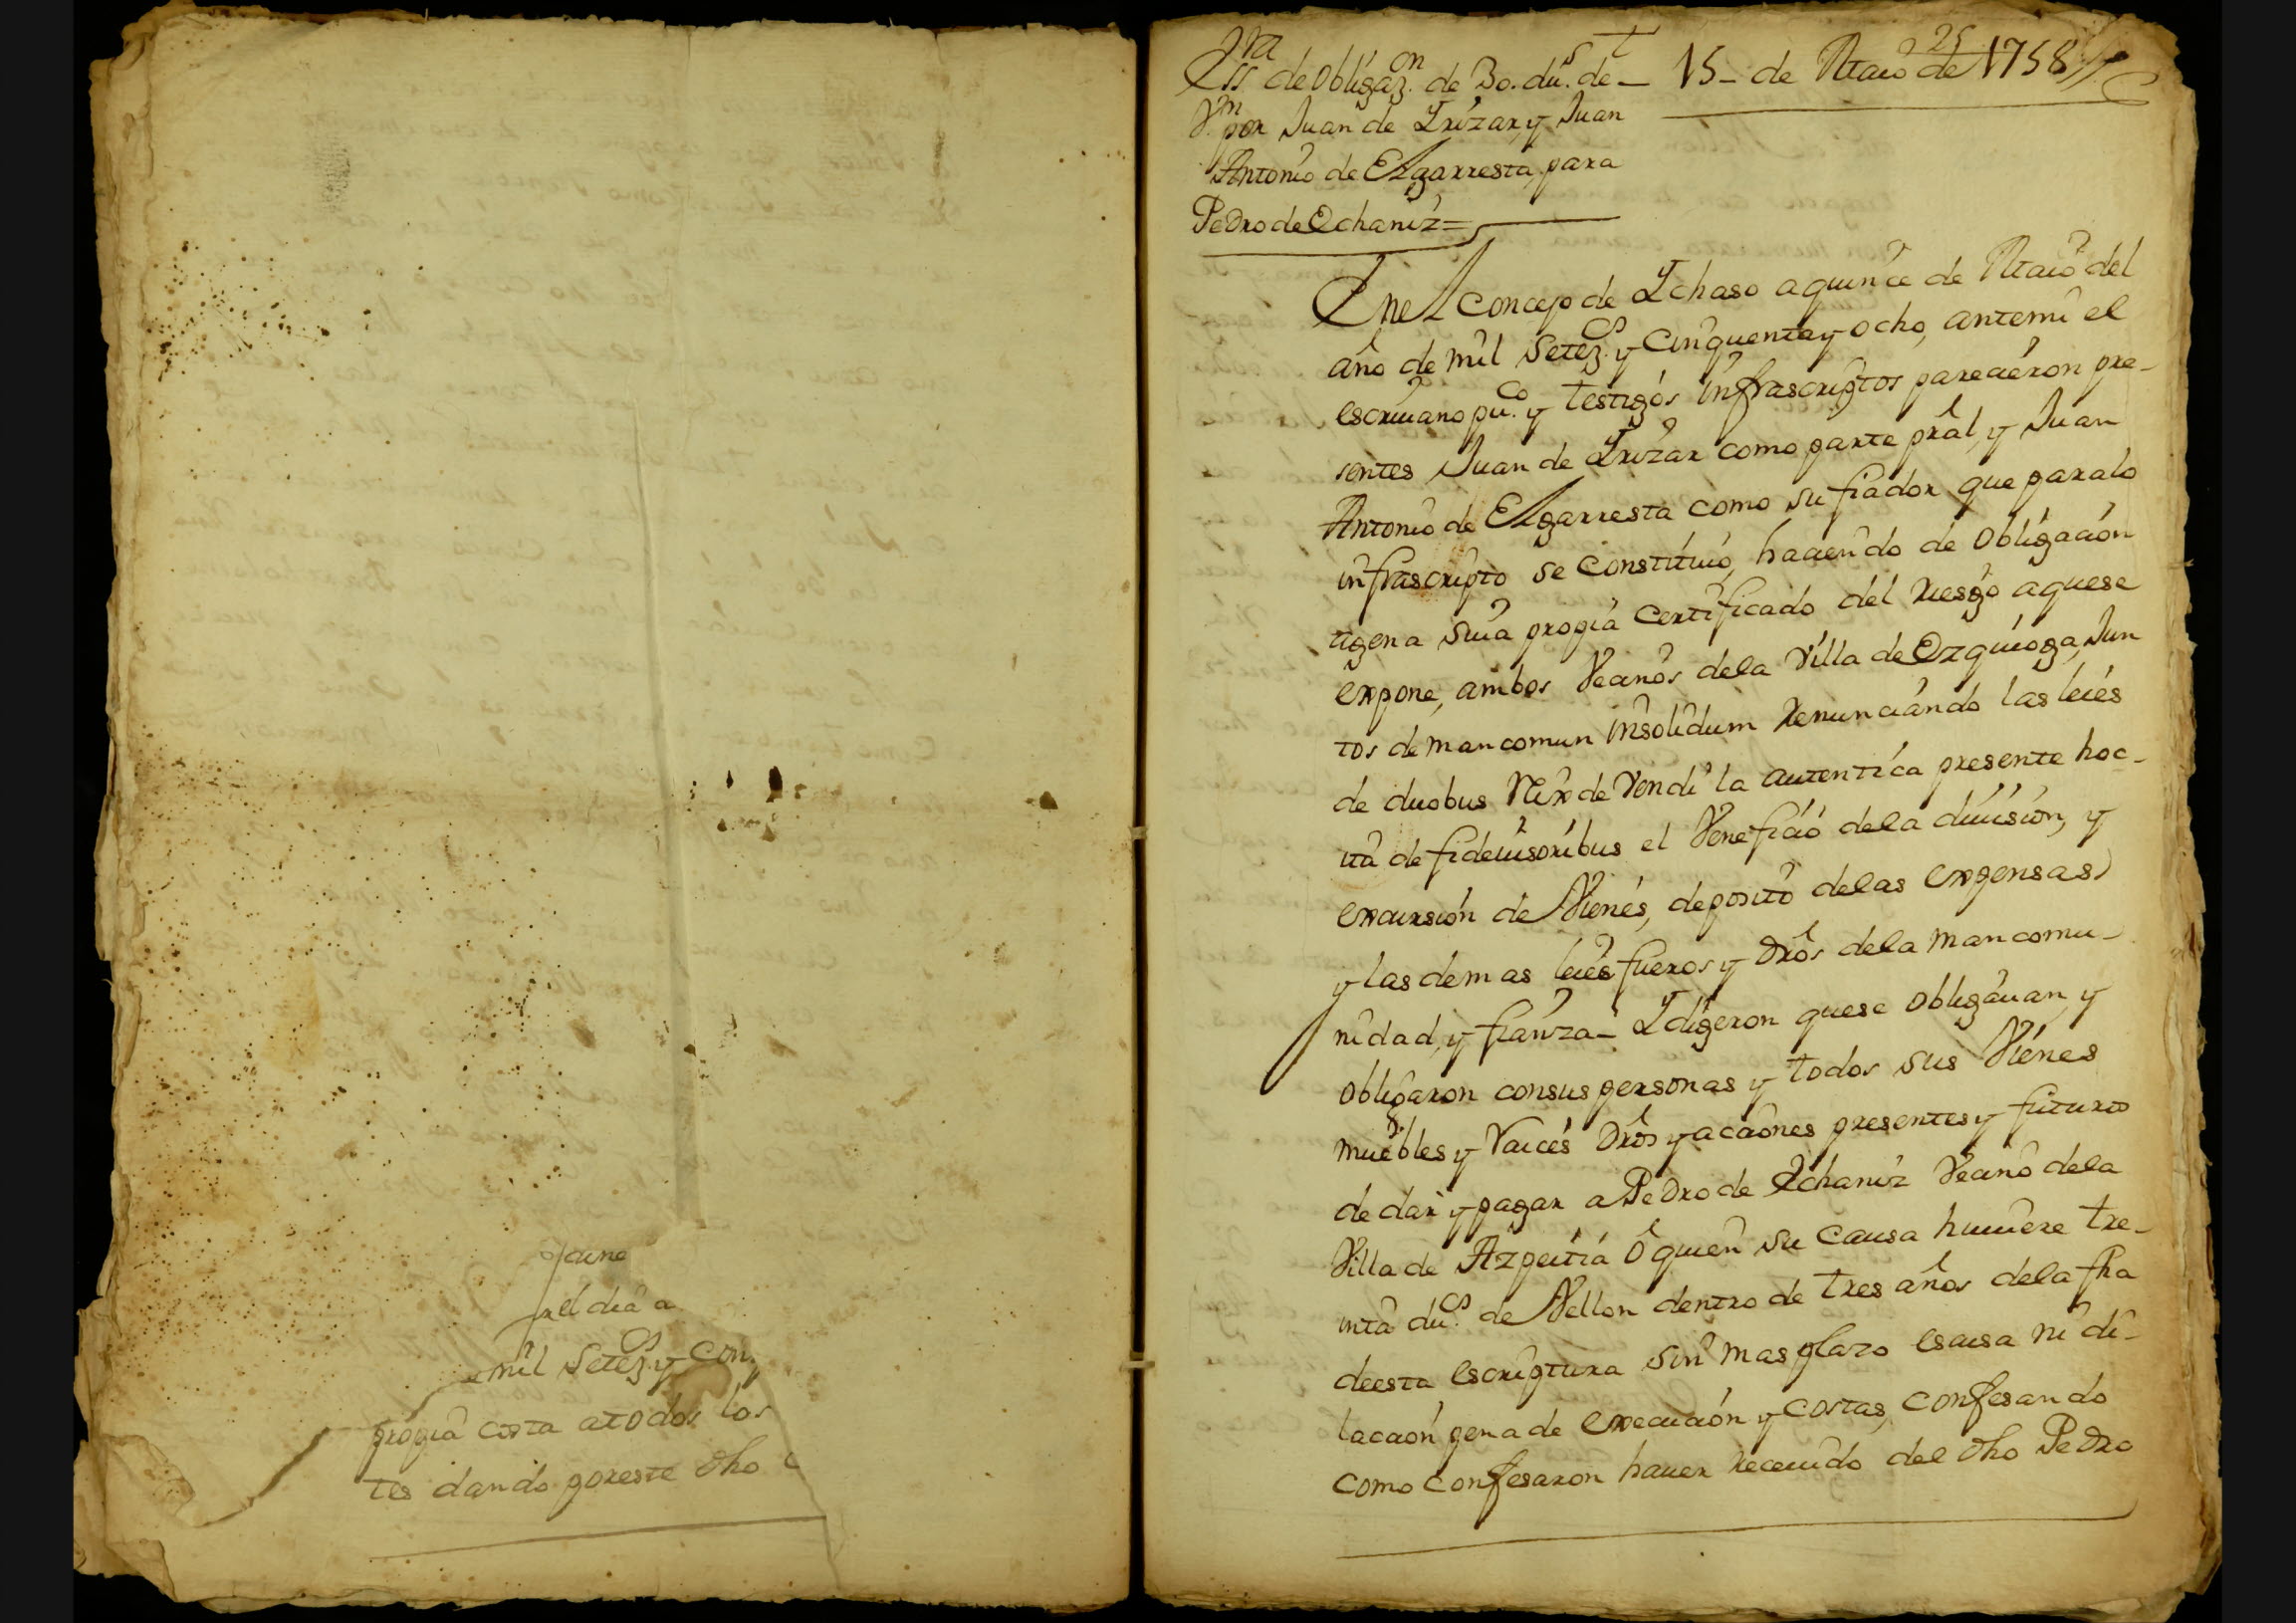 mil Setez.os y Cin,,
propia costa atodos los
tes dando poreste dho
Essra de Obligazon. de 30. dus. de
Vn. por Juan de Yrizar, y Juan
Antonio de Elgarresta, para
Pedro de Echaniz=
15- de Maio de 1758
25
Enel concejo de Ychaso aquince de Maio del
año de mil Setez.os y Cinquentay ocho, antemi el
escriuano pu.co y testigos infrascriptos parecieron pre-
sentes Juan de Yrizar como parte pral, y Juan
Antonio de Elgarresta como su fiador que paralo
infrascripto se constituió, haciendo de obligacion
agena suia propia certificado del riesgo aquese
expone, ambos Vecinos dela Villa de Ezquioga, Jun
tos de mancomun insolidum renunciando las leies
de duobus Rex de Vendi la autentica presente hoc-
ita de fideiusoribus el Veneficio dela diuision, y
excursion de Vienes, deposito delas expensas
y las demas leies fueros y dros dela mancomu-
nidad, y fianza- Ydigeron quese obligauan, y
obligaron consus personas y todos sus Vienes
muebles y Raices dros yacciones presentes y futuros
de dar y pagar a Pedro de Echaniz Vecino dela
Villa de Azpeitia ô quien su causa huuiere tre-
inta du.os de Vellon dentro de tres años dela fha
deesta escriptura sin mas plazo escusa ni di-
lacion pena de execucion y costas, confesando
como confesaron hauer receuido del dho Pedro